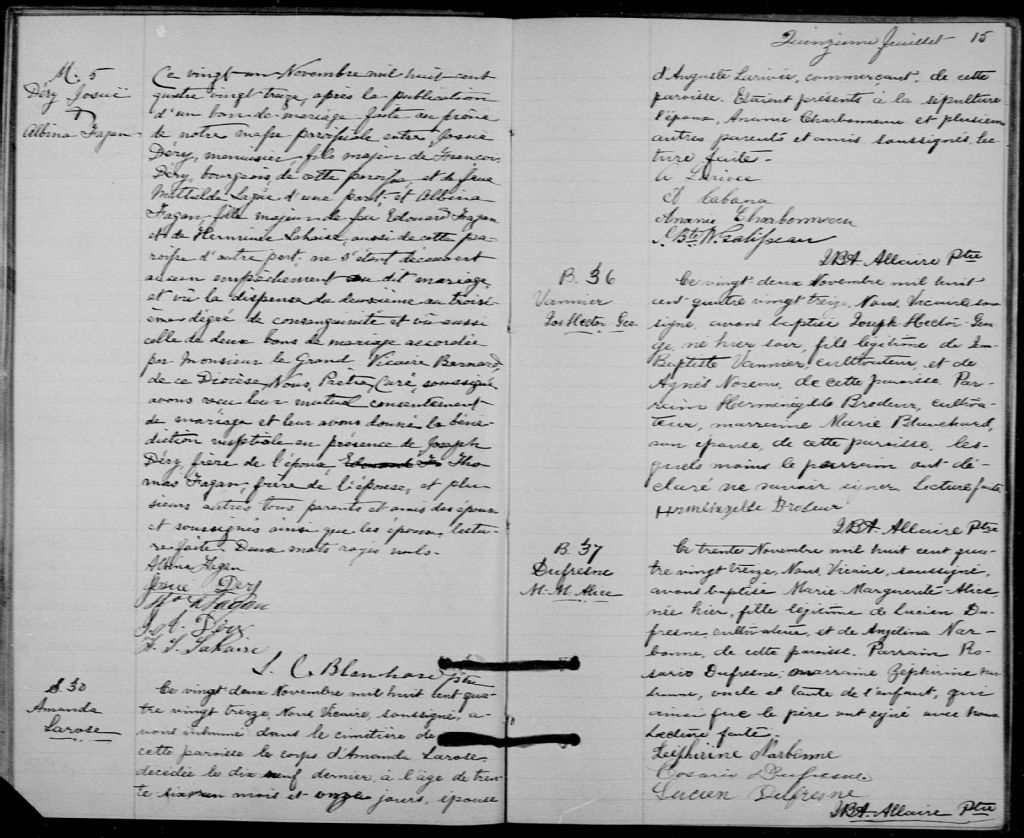 M. 5
Déry Josué
&
Albina Fagan
Ce vingt un Novembre mil huit cent
quatre vingt treize, après la publication
d'un ban de mariage faite au prône
de notre messe paroissiale entre Josué
Déry, menuisier, fils majeur de François
Déry, bourgeois, de cette paroisse et de feue
Mathilde d'une part; et Albina
Fagan, fille majeure de feu Edouard Fagan
et de Herminie Lahaise, aussi de cette pa-
roisse d'autre part, ne s'étant découvert
aucun empêchement au dit mariage,
et vû la dispense du deuxième au troisi-
ème dégré de consanguinité et vû aussi
celle de deux bans de mariage accordée
par Monsieur le Grand Vicaire Bernard,
de ce Diocèse, Nous, Prêtre, Curé, soussigné
avons reçu leur mutuel consentement
de mariage et leur avons donné la béné-
diction nuptiale en présence de Joseph
Déry, frère de l'époux, Edouard Fa Tho-
mas Fagan, frère de l'épouse, et plu-
sieurs autres tous parents et amis des époux
et soussignés ainsi que les époux, lectu-
re faite. Deux mots rayés nuls.
Albina Fagan
Josué Déry
Fagan
Jos. Déry
L. C. Blanchard ptre
S. 30
Amanda
Larose
Ce vingt deux Novembre mil huit cent qua-
tre vingt treize, Nous Vicaire, soussigné, a-
vons inhumé dans le cimetière de
cette paroisse le corps d'Amanda Larose
décédée le dix neuf dernier, à l'âge de tren-
te mois et onze jours, épouse
Quinzième feuillet 15
d'Auguste Larivée, commerçant, de cette
paroisse. Etaient présents à la sépulture
l'époux, Ananie Charbonneau et plusieurs
autres parents et amis soussignés, lec-
ture faite.
A Larivée
Cabana
Ananie Charbonneau
J. Bte N. Galipeau
J.B.A. Allaire Ptre
B. 36
Vannier
Jos Hector Geo.
Ce vingt deux Novembre mil huit
cent quatre vingt treize, Nous, Vicaire sous-
signé, avons baptisé Joseph Hector Geor-
ge, né hier soir, fils légitime de Jn
Baptiste Vannier, cultivateur, et de
Agnès Noreau, de cette paroisse. Par-
rain Herménégilde Brodeur, cultiva-
teur, marraine Marie Blanchard,
son épouse, de cette paroisse, les-
quels moins le parrain ont dé-
claré ne savoir signer. Lecture faite.
Herménégilde Brodeur
J.B.A. Allaire Ptre
B. 37
Dufresne
M. M. Alice
Ce trente Novembre mil huit cent qua-
tre vingt treize, Nous, Vicaire, soussigné,
avons baptisé Marie Marguerite Alice,
née hier, fille légitime de Lucien Du-
fresne, cultivateur, et de Angelina Nar-
bonne, de cette paroisse. Parrain Ro-
sario Dufresne; marraine Zéphirine Nar-
bonne, oncle et tante de l'enfant, qui
ainsi que le père ont signé avec nous
Lecture faite.
Zéphirine Narbonne
Rosario Dufresne
Lucien Dufresne
J.B.A. Allaire Ptre